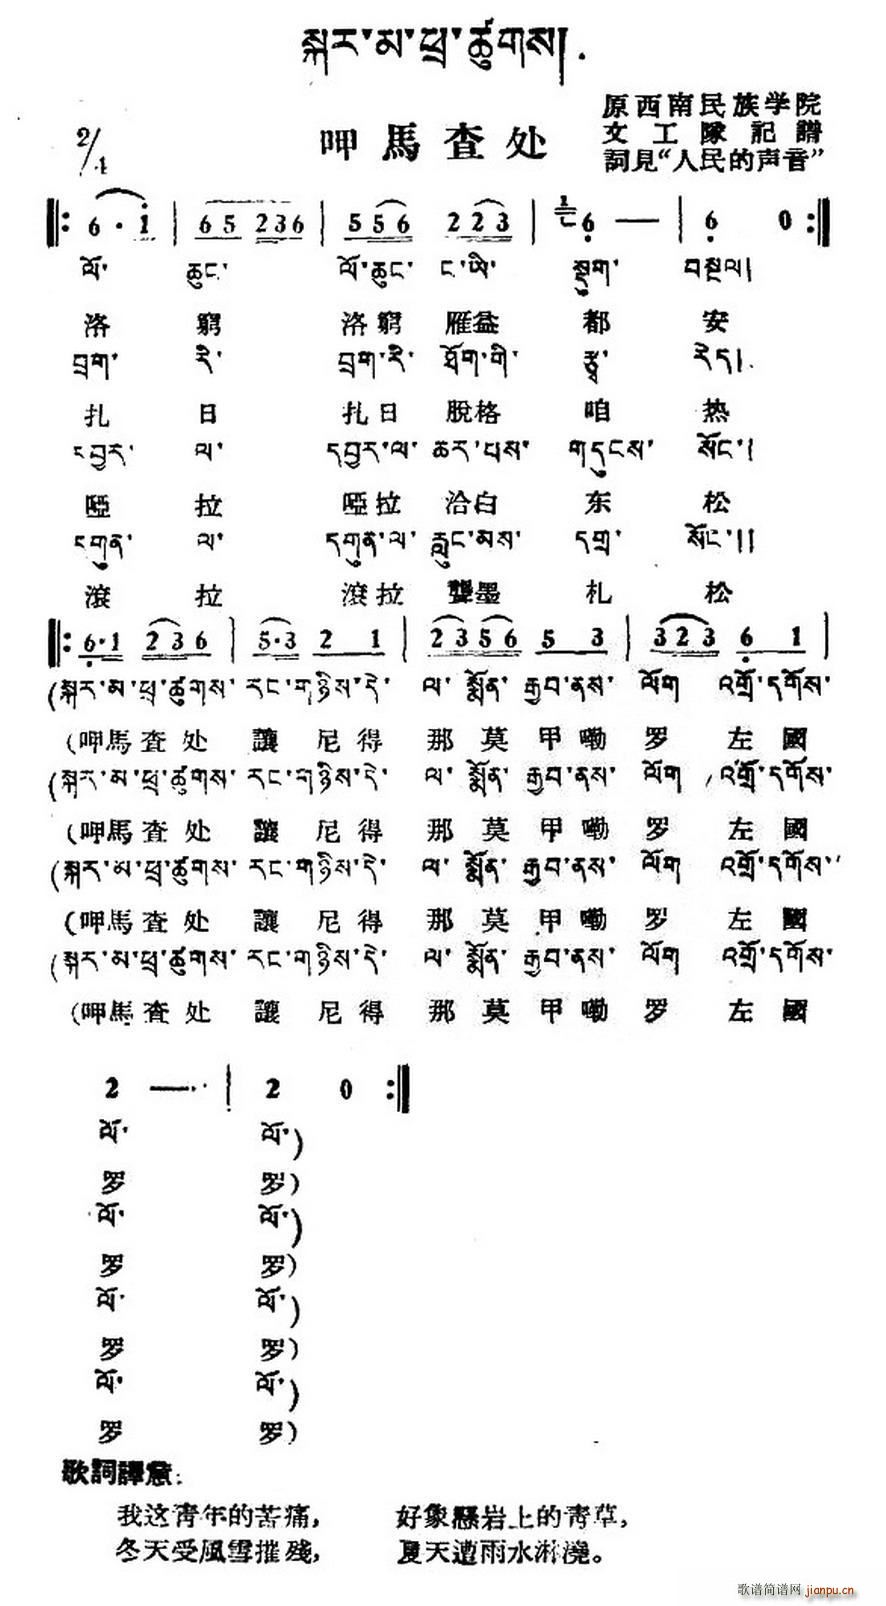 སྐར་མ་ཕྲ་ཚུགས།
呷馬査处
原西南民族学院
文工隊記譜
詞見“人民的声音”
2/4
6·i | 65 236 | 556 223 | 6 — | 6 0
ལོ་ ཆུང་ ལོ་ཆུང་ ང་ཡི་ སྡུག་ བསྔལ།
洛窮 洛窮 雁益 都 安
བྲག་ རི་ བྲག་རི་ ཐོག་གི་ རྩྭ་ རེད།
扎日 扎日 脫格 咱 热
དབྱར་ ལ་ དབྱར་ལ་ ཆར་པས་ གདུངས་ སོང་།
啞拉 啞拉 洽白 东 松
དགུན་ ལ་ དགུན་ལ་ རླུང་མས་ དགྲ་ སོང་།།
滾拉 滾拉 龔墨 札 松
6·1 236 | 5·3 2 1 | 23 56 5 3 | 323 6 1 |
(སྐར་མ་ཕྲ་ཚུགས་ རང་གཉིས་དེ་ ལ་ སྨོན་ རྒྱབ་ནས་ ལོག འགྲོ་དགོས་
(呷馬査处 讓 尼得 那 莫 甲嘞 罗 左 國
(སྐར་མ་ཕྲ་ཚུགས་ རང་གཉིས་དེ་ ལ་ སྨོན་ རྒྱབ་ནས་ ལོག འགྲོ་དགོས་
(呷馬査处 讓 尼得 那 莫 甲嘞 罗 左 國
(སྐར་མ་ཕྲ་ཚུགས་ རང་གཉིས་དེ་ ལ་ སྨོན་ རྒྱབ་ནས་ ལོག འགྲོ་དགོས་
(呷馬査处 讓 尼得 那 莫 甲嘞 罗 左 國
(སྐར་མ་ཕྲ་ཚུགས་ རང་གཉིས་དེ་ ལ་ སྨོན་ རྒྱབ་ནས་ ལོག འགྲོ་དགོས་
(呷馬査处 讓 尼得 那 莫 甲嘞 罗 左 國
2 — | 2 0
ལོ་ ལོ་)
罗 罗)
ལོ་ ལོ་)
罗 罗)
ལོ་ ལོ་)
罗 罗)
ལོ་ ལོ་)
罗 罗)
歌詞譯意:
我这青年的苦痛, 好象懸岩上的青草,
冬天受風雪摧殘, 夏天遭雨水淋澆。
歌谱简谱网 jianpu.cn